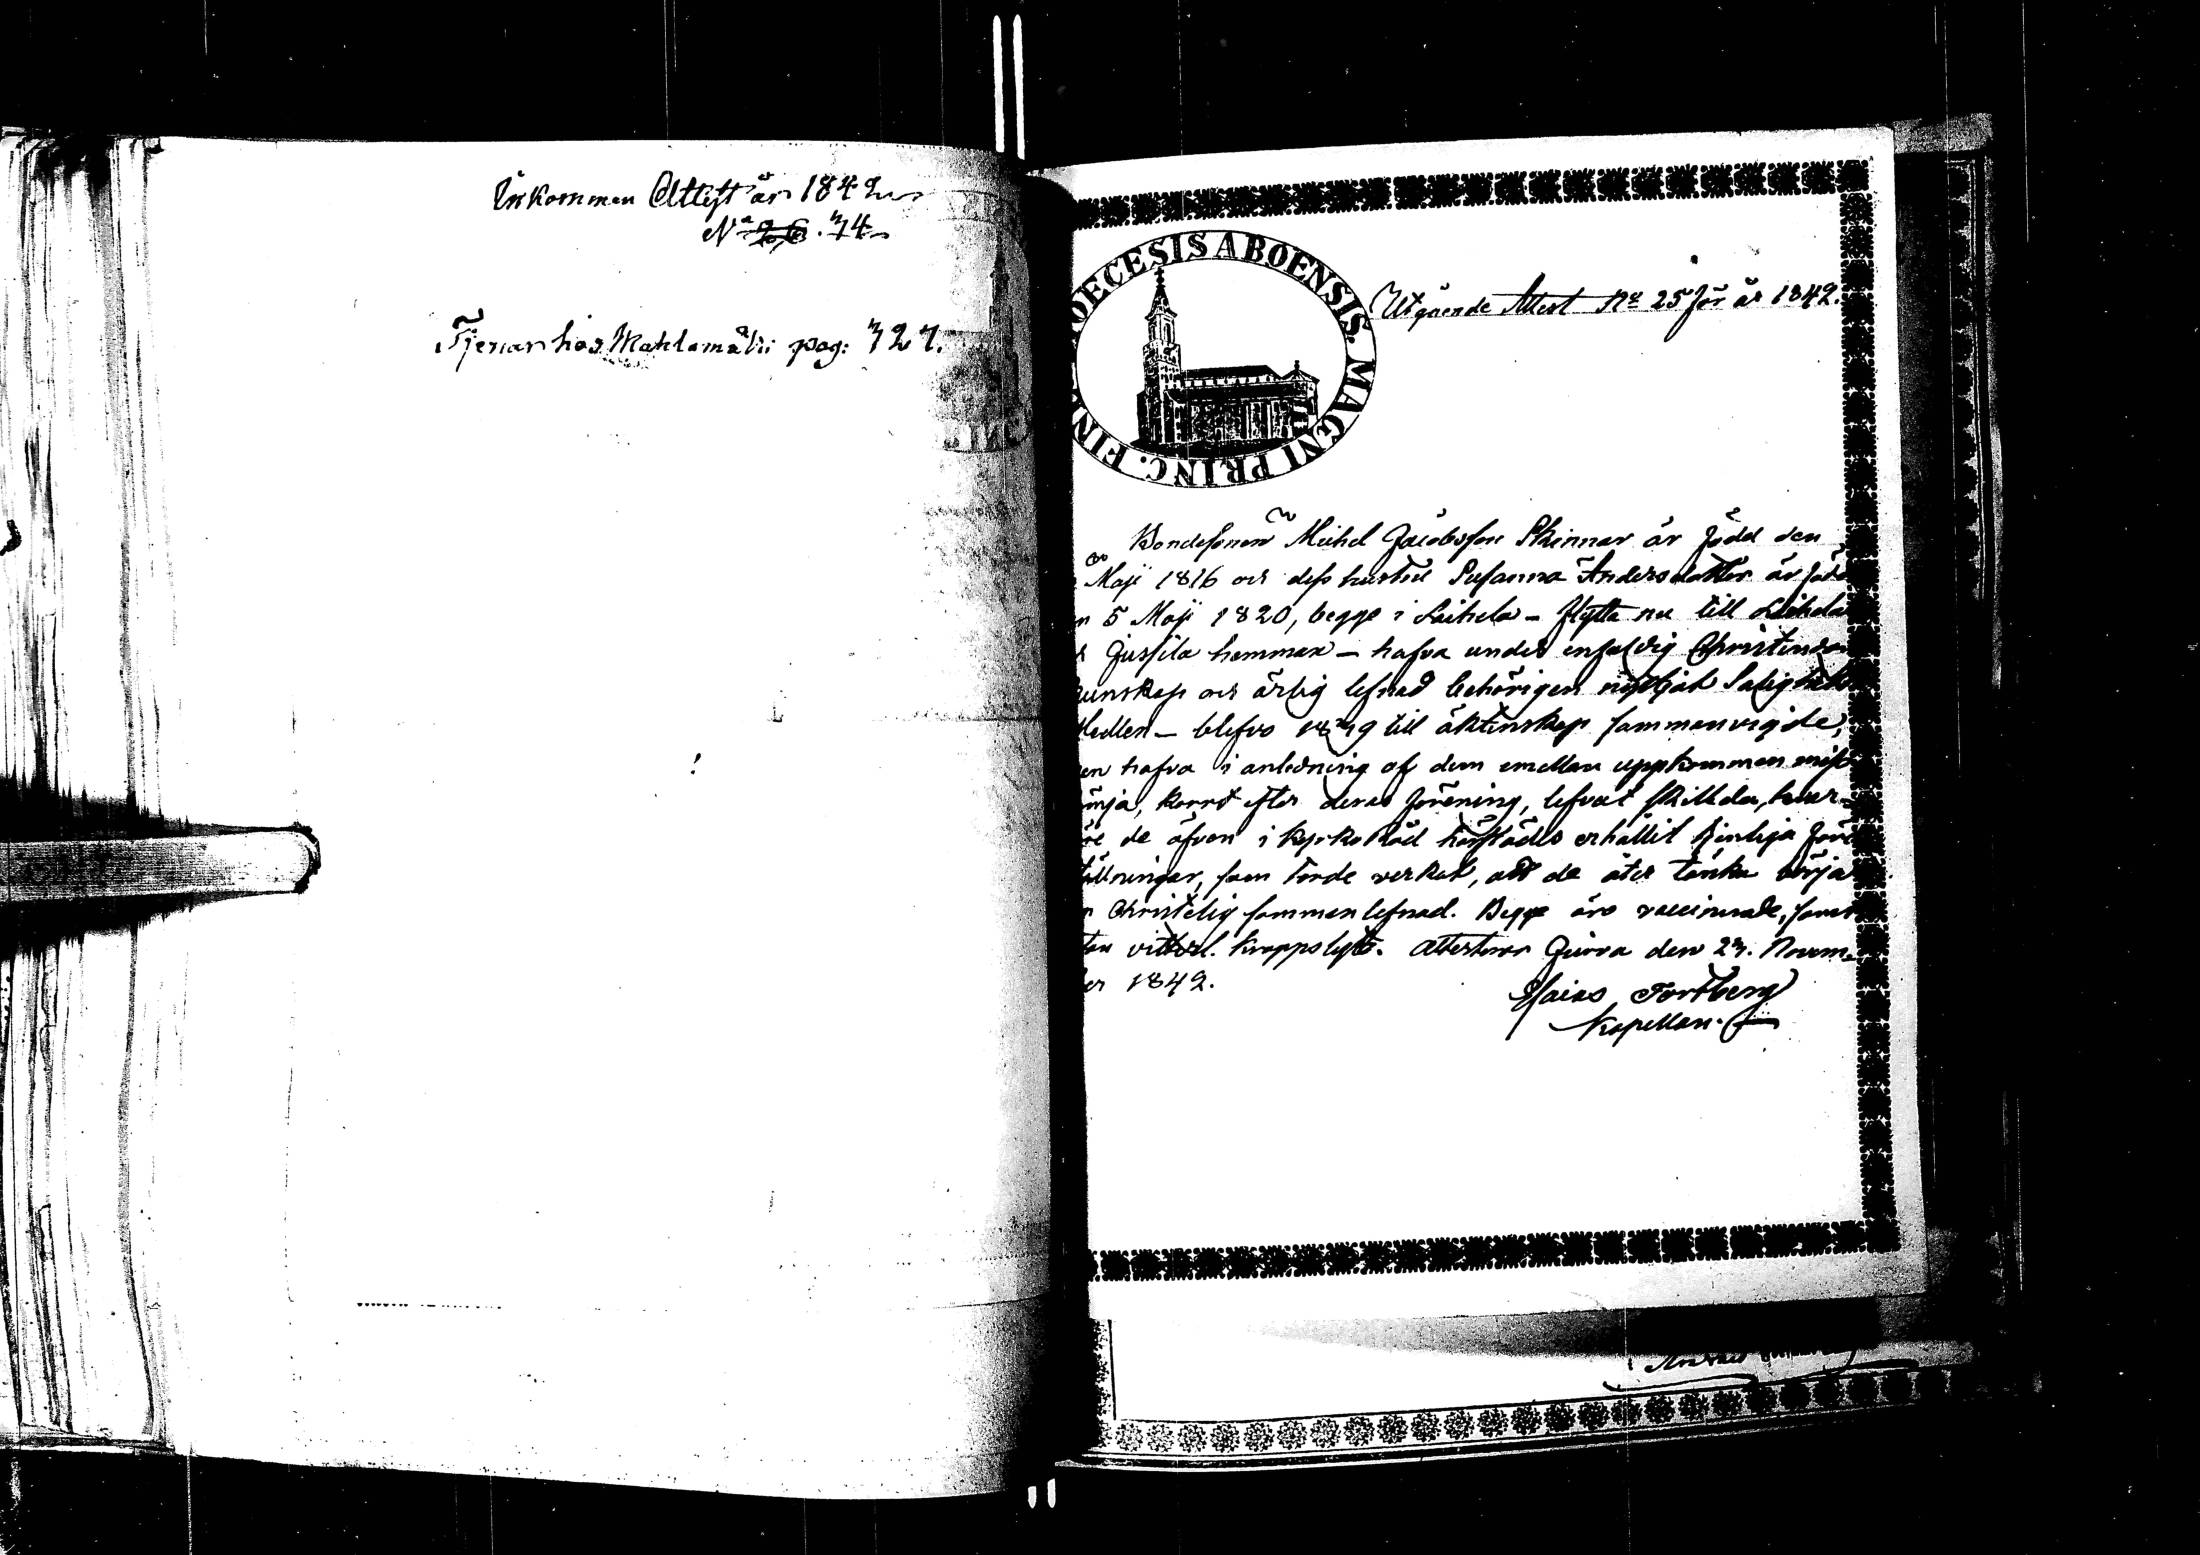 Inkommen Attest år 1842
No 26. 74
Tjenar hos Mahlamäki pag: 727.
DIOECESIS ABOENSIS. MAGNI PRINC. FINL
Utgående Attest No 25 för år 1842.
Bondesonen Michel Jacobsson Skinnar är född den
Maji 1816 och dess hustru Susanna Andersdotter är född
n 5 Maji 1820, begge i Laihela – flytta nu till Laihela
Jussila hemman – hafva under enfaldig Christendoms
kunskap och ärlig lefnad behörigen nyttjat Salighets
Medlen – blefvo 1839 till äktenskap sammanvigde,
en hafva i anledning af dem emellan uppkommen miss
ämja, kort efter deras förening, lefvat skillda, hvar-
öre de äfven i kyrko Råd härstädes erhållit tjenliga före
tällningar, som torde verkat, att de åter tänka börja
n Christelig sammanlefnad. Begge äro vaccinerade, samt
tan kroppslyte. Attesterar Jurva den 23. Novem-
er 1842.
Esaias Fortberg
Kapellan.